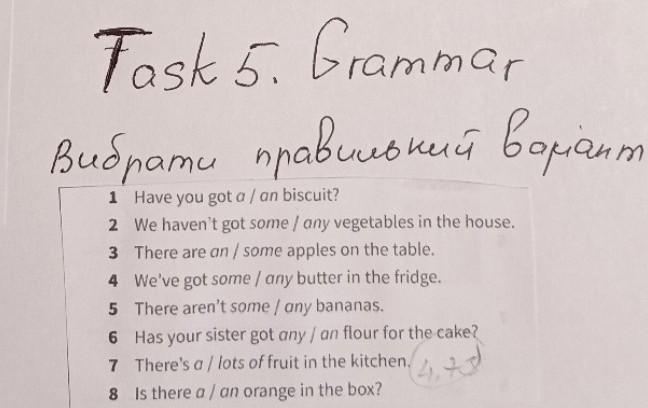 Task 5. Grammar
Вибрати правильний варіант
1 Have you got a / an biscuit?
2 We haven't got some / any vegetables in the house.
3 There are an / some apples on the table.
4 We've got some / any butter in the fridge.
5 There aren't some / any bananas.
6 Has your sister got any / an flour for the cake?
7 There's a / lots of fruit in the kitchen.
8 Is there a / an orange in the box?